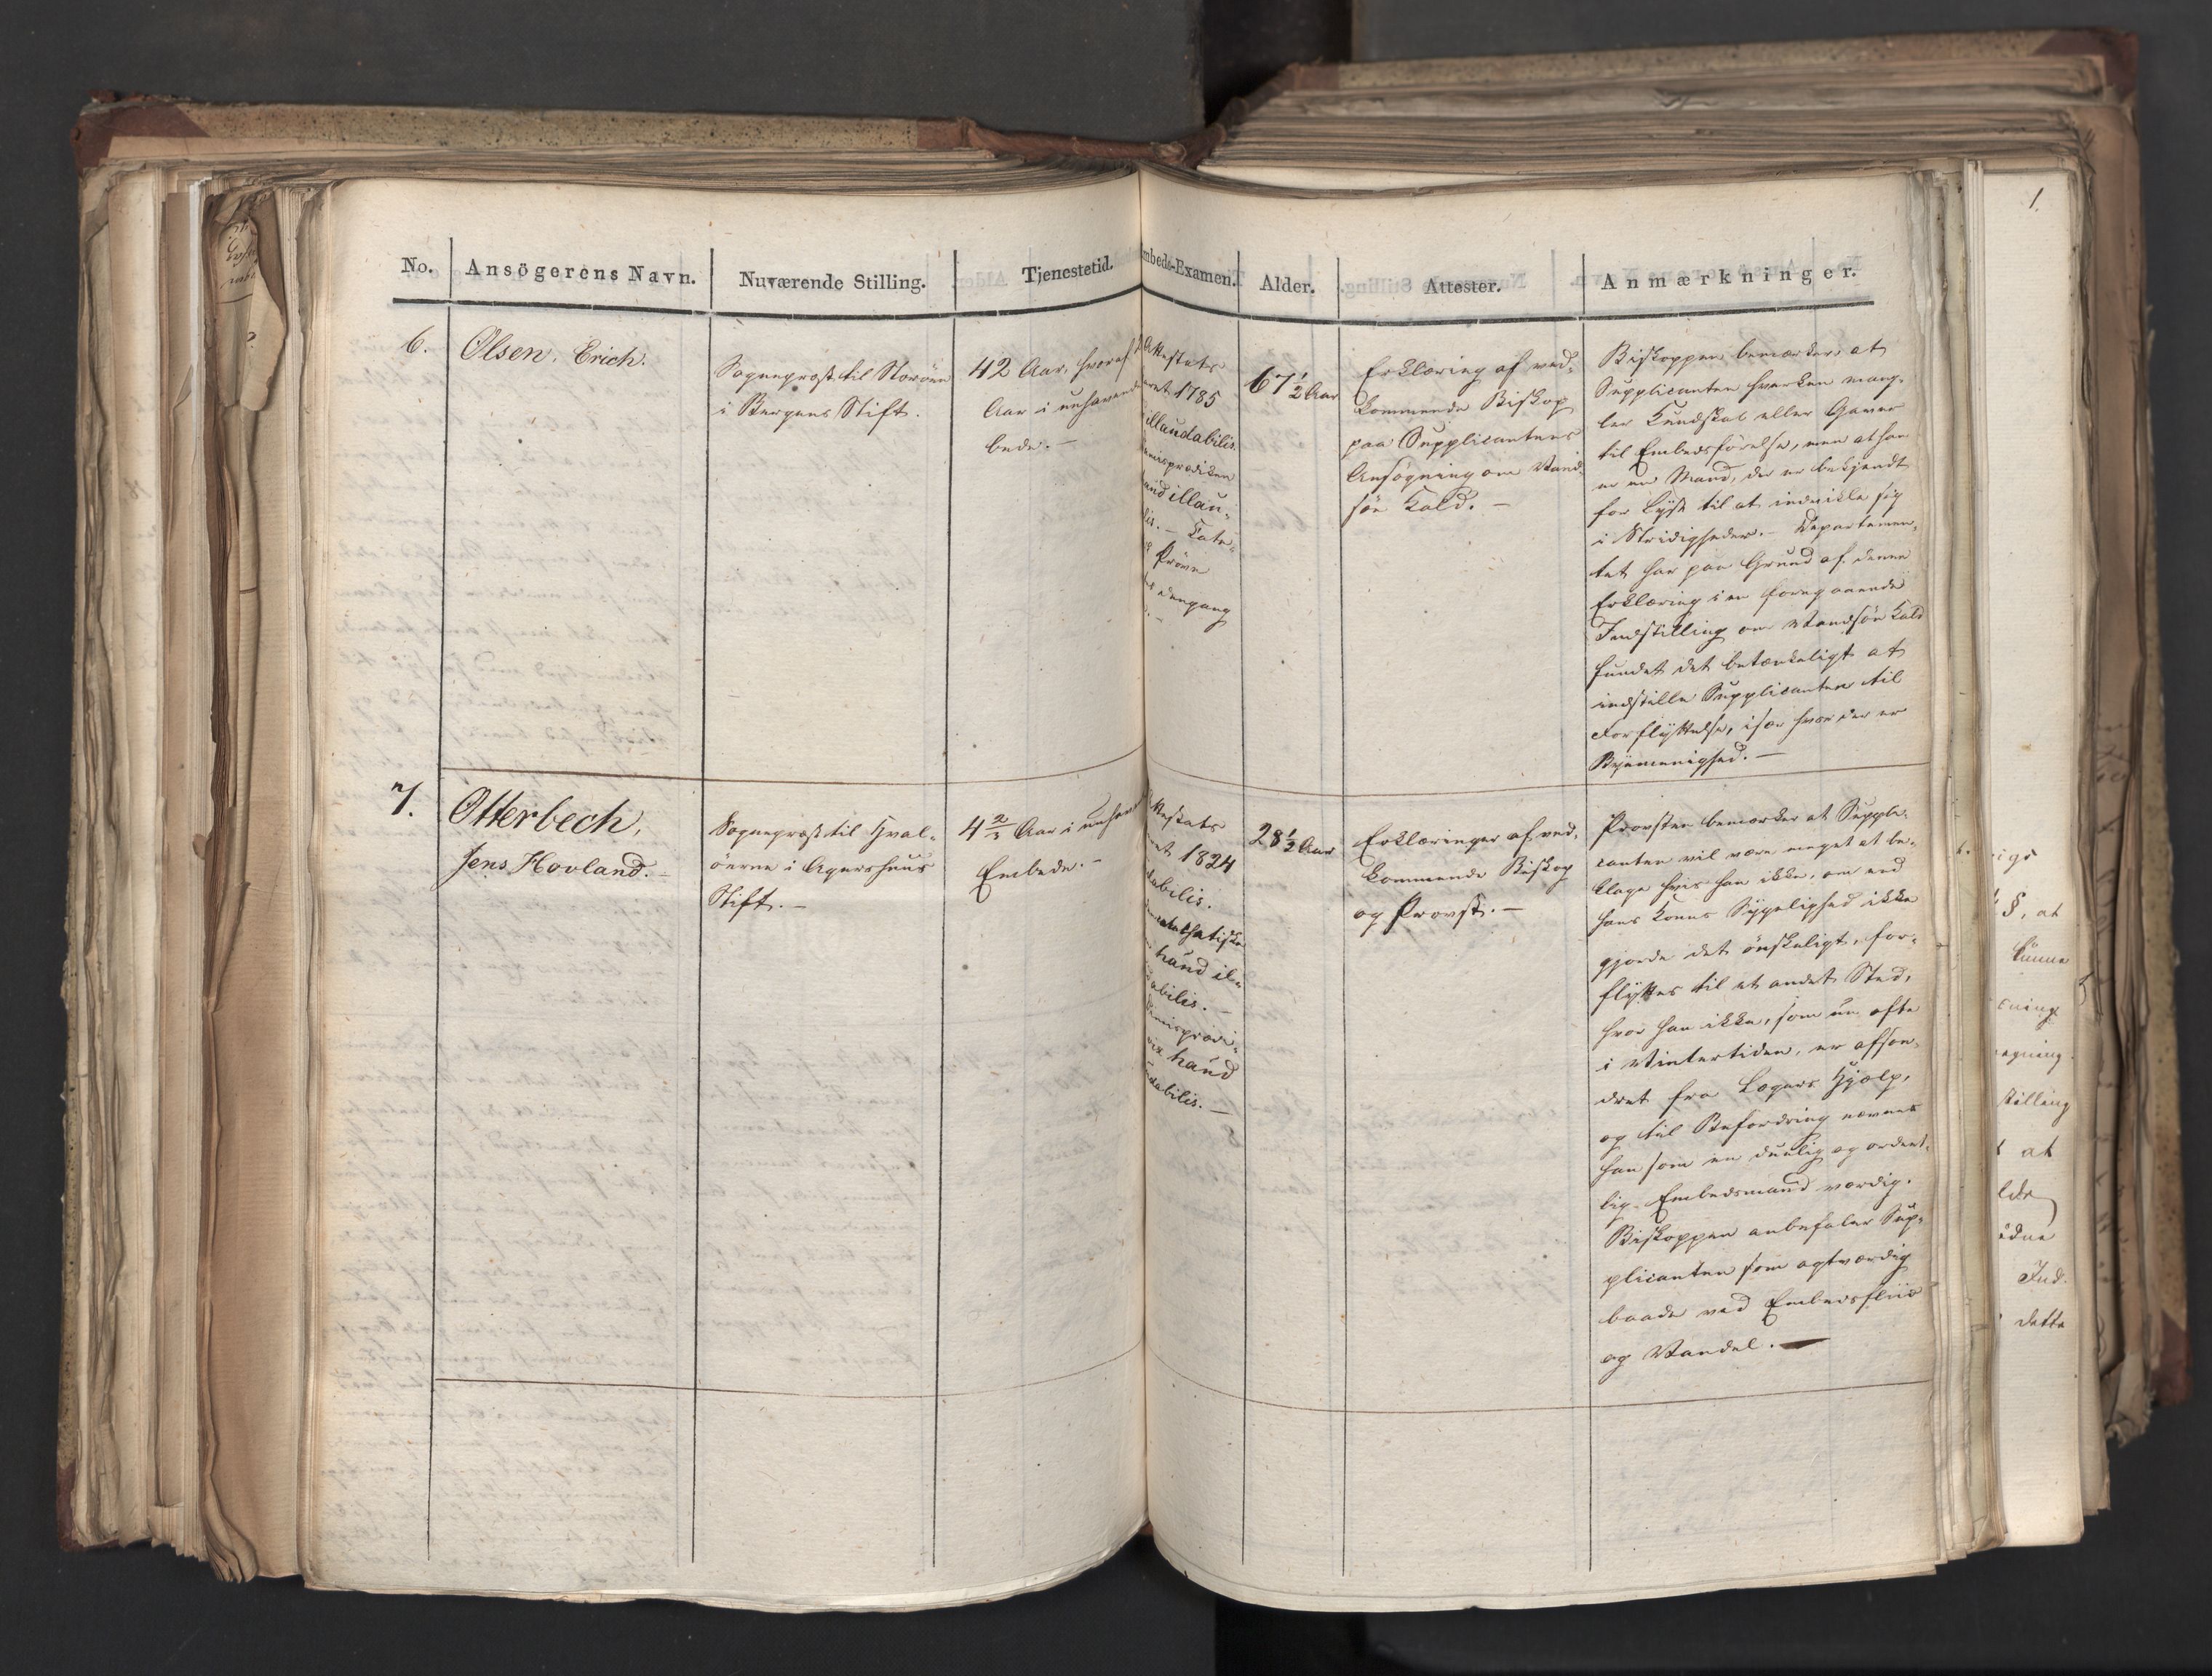 No. Ansögerens Navn. Nuværende Stilling. Tjenestetid. mbeds-Examen. Alder. Attester. Anmærkninger.
6.
Olsen, Erich.
Sognepræst til Storöen
i Bergens Stift.
42 Aar, hvoraf
Aar i nuhavende
bede. —
Attestats
1785
illaudabilis.
haud illau-
lis. — Kate-
Prøve
dengang
67 1/2 Aar
Erklæring af ved-
kommende Biskop
paa Supplicantens
Ansøgning om Vand-
søe Kald. —
Biskoppen bemærker, at
Supplicanten hverken mang-
ler Kundskab eller Gaver
til Embedsförelse, men at han
er en Mand, der er bekjendt
for Lyst til at indvikle sig
i Stridigheder. — Departemen-
tet har paa Grund af denne
Erklæring i en foregaaende
Indstilling om Vandsöe Kald
fundet det betænkeligt at
indstille Supplicanten til
Forflyttelse, især hvor der er
Byemenighed. —
7.
Otterbech,
Jens Hovland. —
Sognepræst til Hval-
öerne i Agershuus
Stift. —
4 2/3 Aar i
Embede. —
Attestats
1824
dabilis.
haud ilau
abilis. —
haud
dabilis. —
28 1/3 Aar
Erklæringer af ved-
kommende Biskop
og Provst. —
Provsten bemærker at Suppli-
canten vil være meget at be-
klage hvis han ikke, om end
hans Kones Sygelighed ikke
gjorde det ønskeligt, for-
flyttes til et andet Sted,
hvor han ikke, som nu ofte
i Vintertiden, er afson-
dret fra Lægens Hjælp,
og til Befordring nævnes
han som en duelig og ordent-
lig Embedsmand værdig.
Biskoppen anbefaler Sup-
plicanten som agtværdig
baade ved Embedsfliid
og Vandel. —
1.
§, at
kunne
tilling
at
Ind-
dette